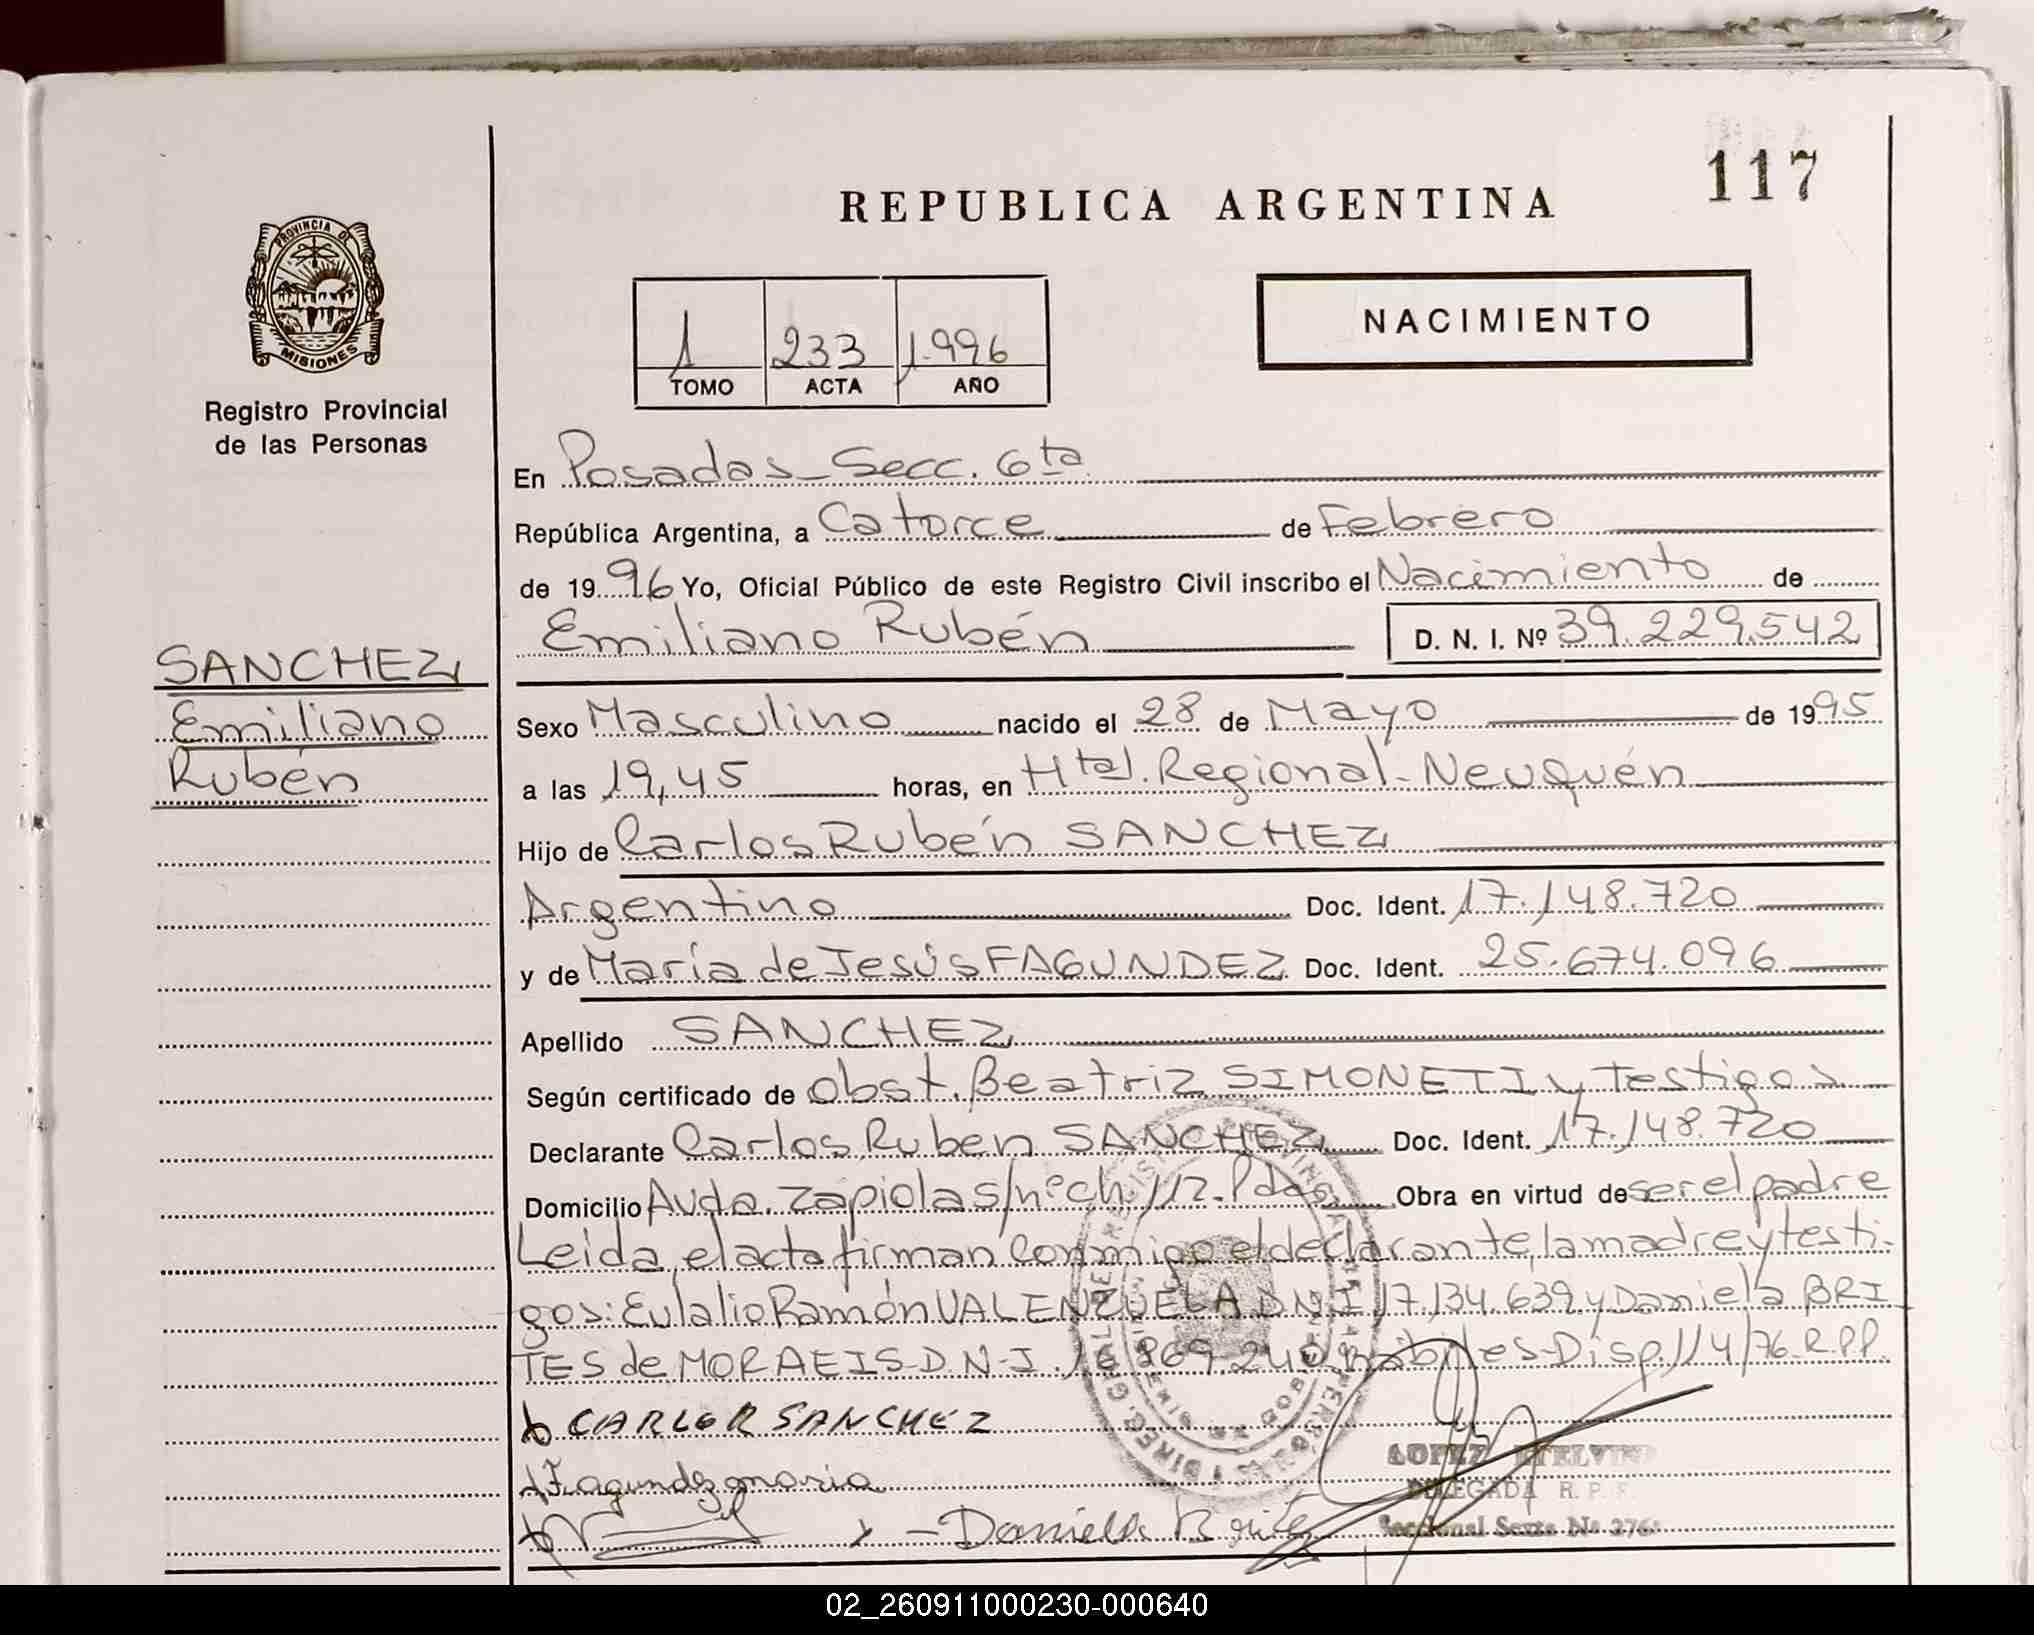 117
REPUBLICA ARGENTINA
PROVINCIA DE
MISIONES
NACIMIENTO
1 233 1.996
TOMO ACTA AÑO
Registro Provincial
de las Personas
En Posadas - Secc. 6ta
República Argentina, a Catorce de Febrero
de 1996 Yo, Oficial Público de este Registro Civil inscribo el Nacimiento de
Emiliano Rubén D. N. I. Nº 39.229.542
SANCHEZ
Emiliano
Rubén
Sexo Masculino nacido el 28 de Mayo de 1995
a las 19,45 horas, en Htal. Regional - Neuquén
Hijo de Carlos Rubén SANCHEZ
Argentino Doc. Ident. 17.148.720
y de María de Jesús FAGUNDEZ Doc. Ident. 25.674.096
Apellido SANCHEZ
Según certificado de Obst. Beatriz SIMONETI y Testigos
Declarante Carlos Ruben SANCHEZ Doc. Ident. 17.148.720
Domicilio Avda. Zapiola s/nº ch. 112 - Pdas Obra en virtud de ser el padre
Leida el acta firman conmigo el declarante, la madre y testi-
gos: Eulalio Ramón VALENZUELA D.N.I 17.134.639 y Daniela BRI
TES de MORAEIS - D.N.I. 16.869.240 hábiles - Disp. 114/76. R.PP.
CARLOR SANCHEZ
Fagundez maria
Daniela Brites
LOPEZ ETELVINA
DELEGADA R. P. P.
Seccional Sexta Nº 276
02_260911000230-000640